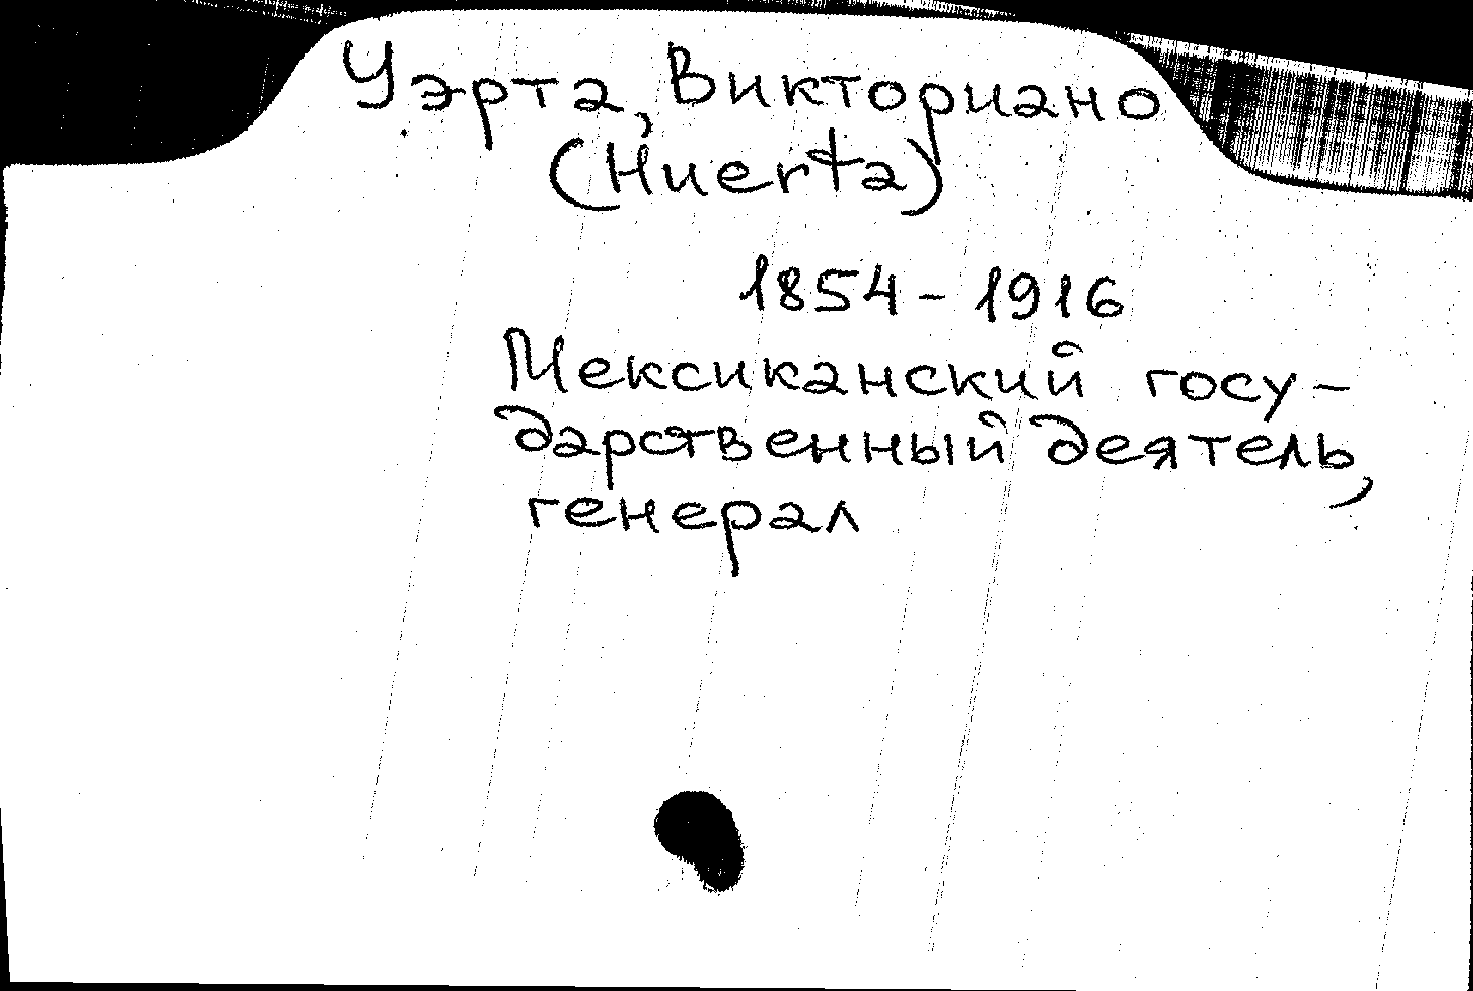 Уэрта, Викториано
(Huerta)
1854-1916
Мексиканский госу-
дарственный деятель,
генерал